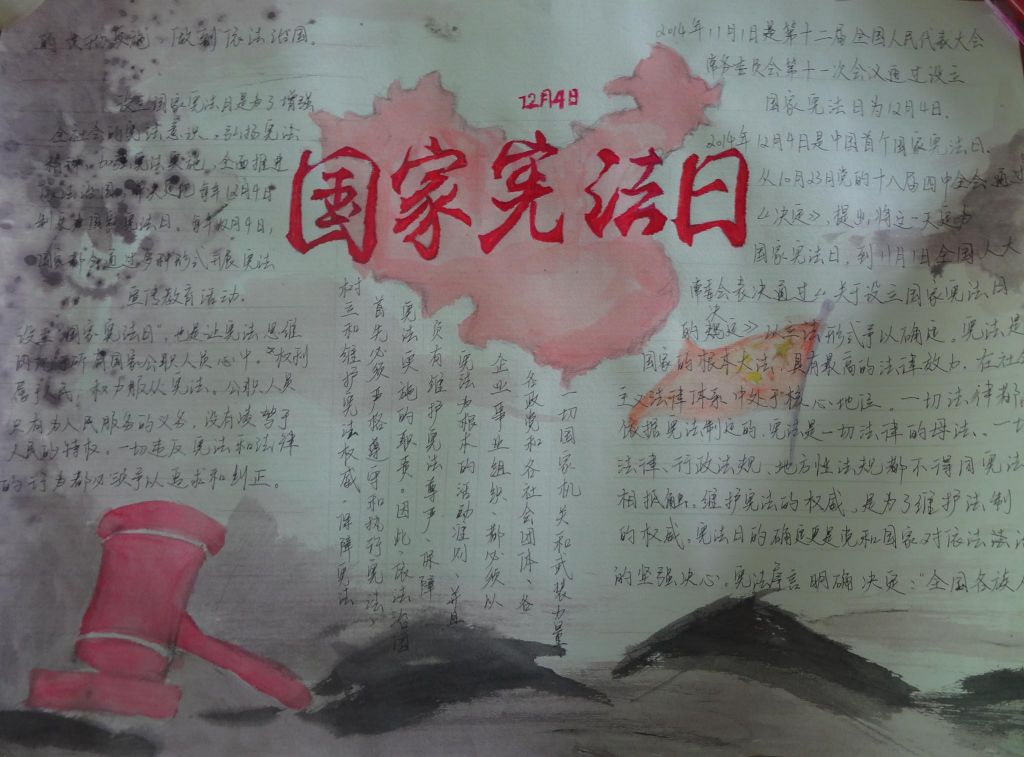 12月4日
国家宪法日
2014年11月1日是第十二届全国人民代表大会
常务委员会第十一次会议通过设立
国家宪法日为12月4日.
2014年12月4日是中国首个国家宪法日.
从10月23日党的十八届四中全会通过
《决定》,提出将这一天定为
国家宪法日,到11月1日全国人大
常委会表决通过《关于设立国家宪法日
的决定》以立法形式予以确定。宪法是
国家的根本大法,具有最高的法律效力,在社会
主义法律体系中处于核心地位。一切法律都
依据宪法制定的,宪法是一切法律的母法、一切
法律、行政法规、地方性法规都不得同宪法
相抵触。维护宪法的权威,是为了维护法制
的权威,宪法日的确定更是党和国家对依法
的坚强决心。宪法序言明确决定:"全国各族人
一切国家机关和武装力量
各政党和各社会团体、各
企业事业组织、都必须以
宪法为根本的活动准则、并且
负有维护宪法尊严、保障
宪法实施的职责。因此,依法治国
首先必须严格遵守和执行宪法、
树立和维护宪法权威,保障宪法
的贯彻实施,做到依法治国.
设立国家宪法日是为了增强
全社会的宪法意识,弘扬宪法
精神,加强宪法实施,全面推进
依法治国,决定把每年12月4日
制定为国家宪法日。每年12月4日,
国家都会通过多种形式开展宪法
宣传教育活动.
设立"国家宪法日",也是让宪法思维
国家公职人员心中。"权利
属于人民,权力服从宪法。公职人员
只有为人民服务的义务,没有凌驾于
人民的特权。一切违反宪法和法律
的行为都必须予以追求和纠正。